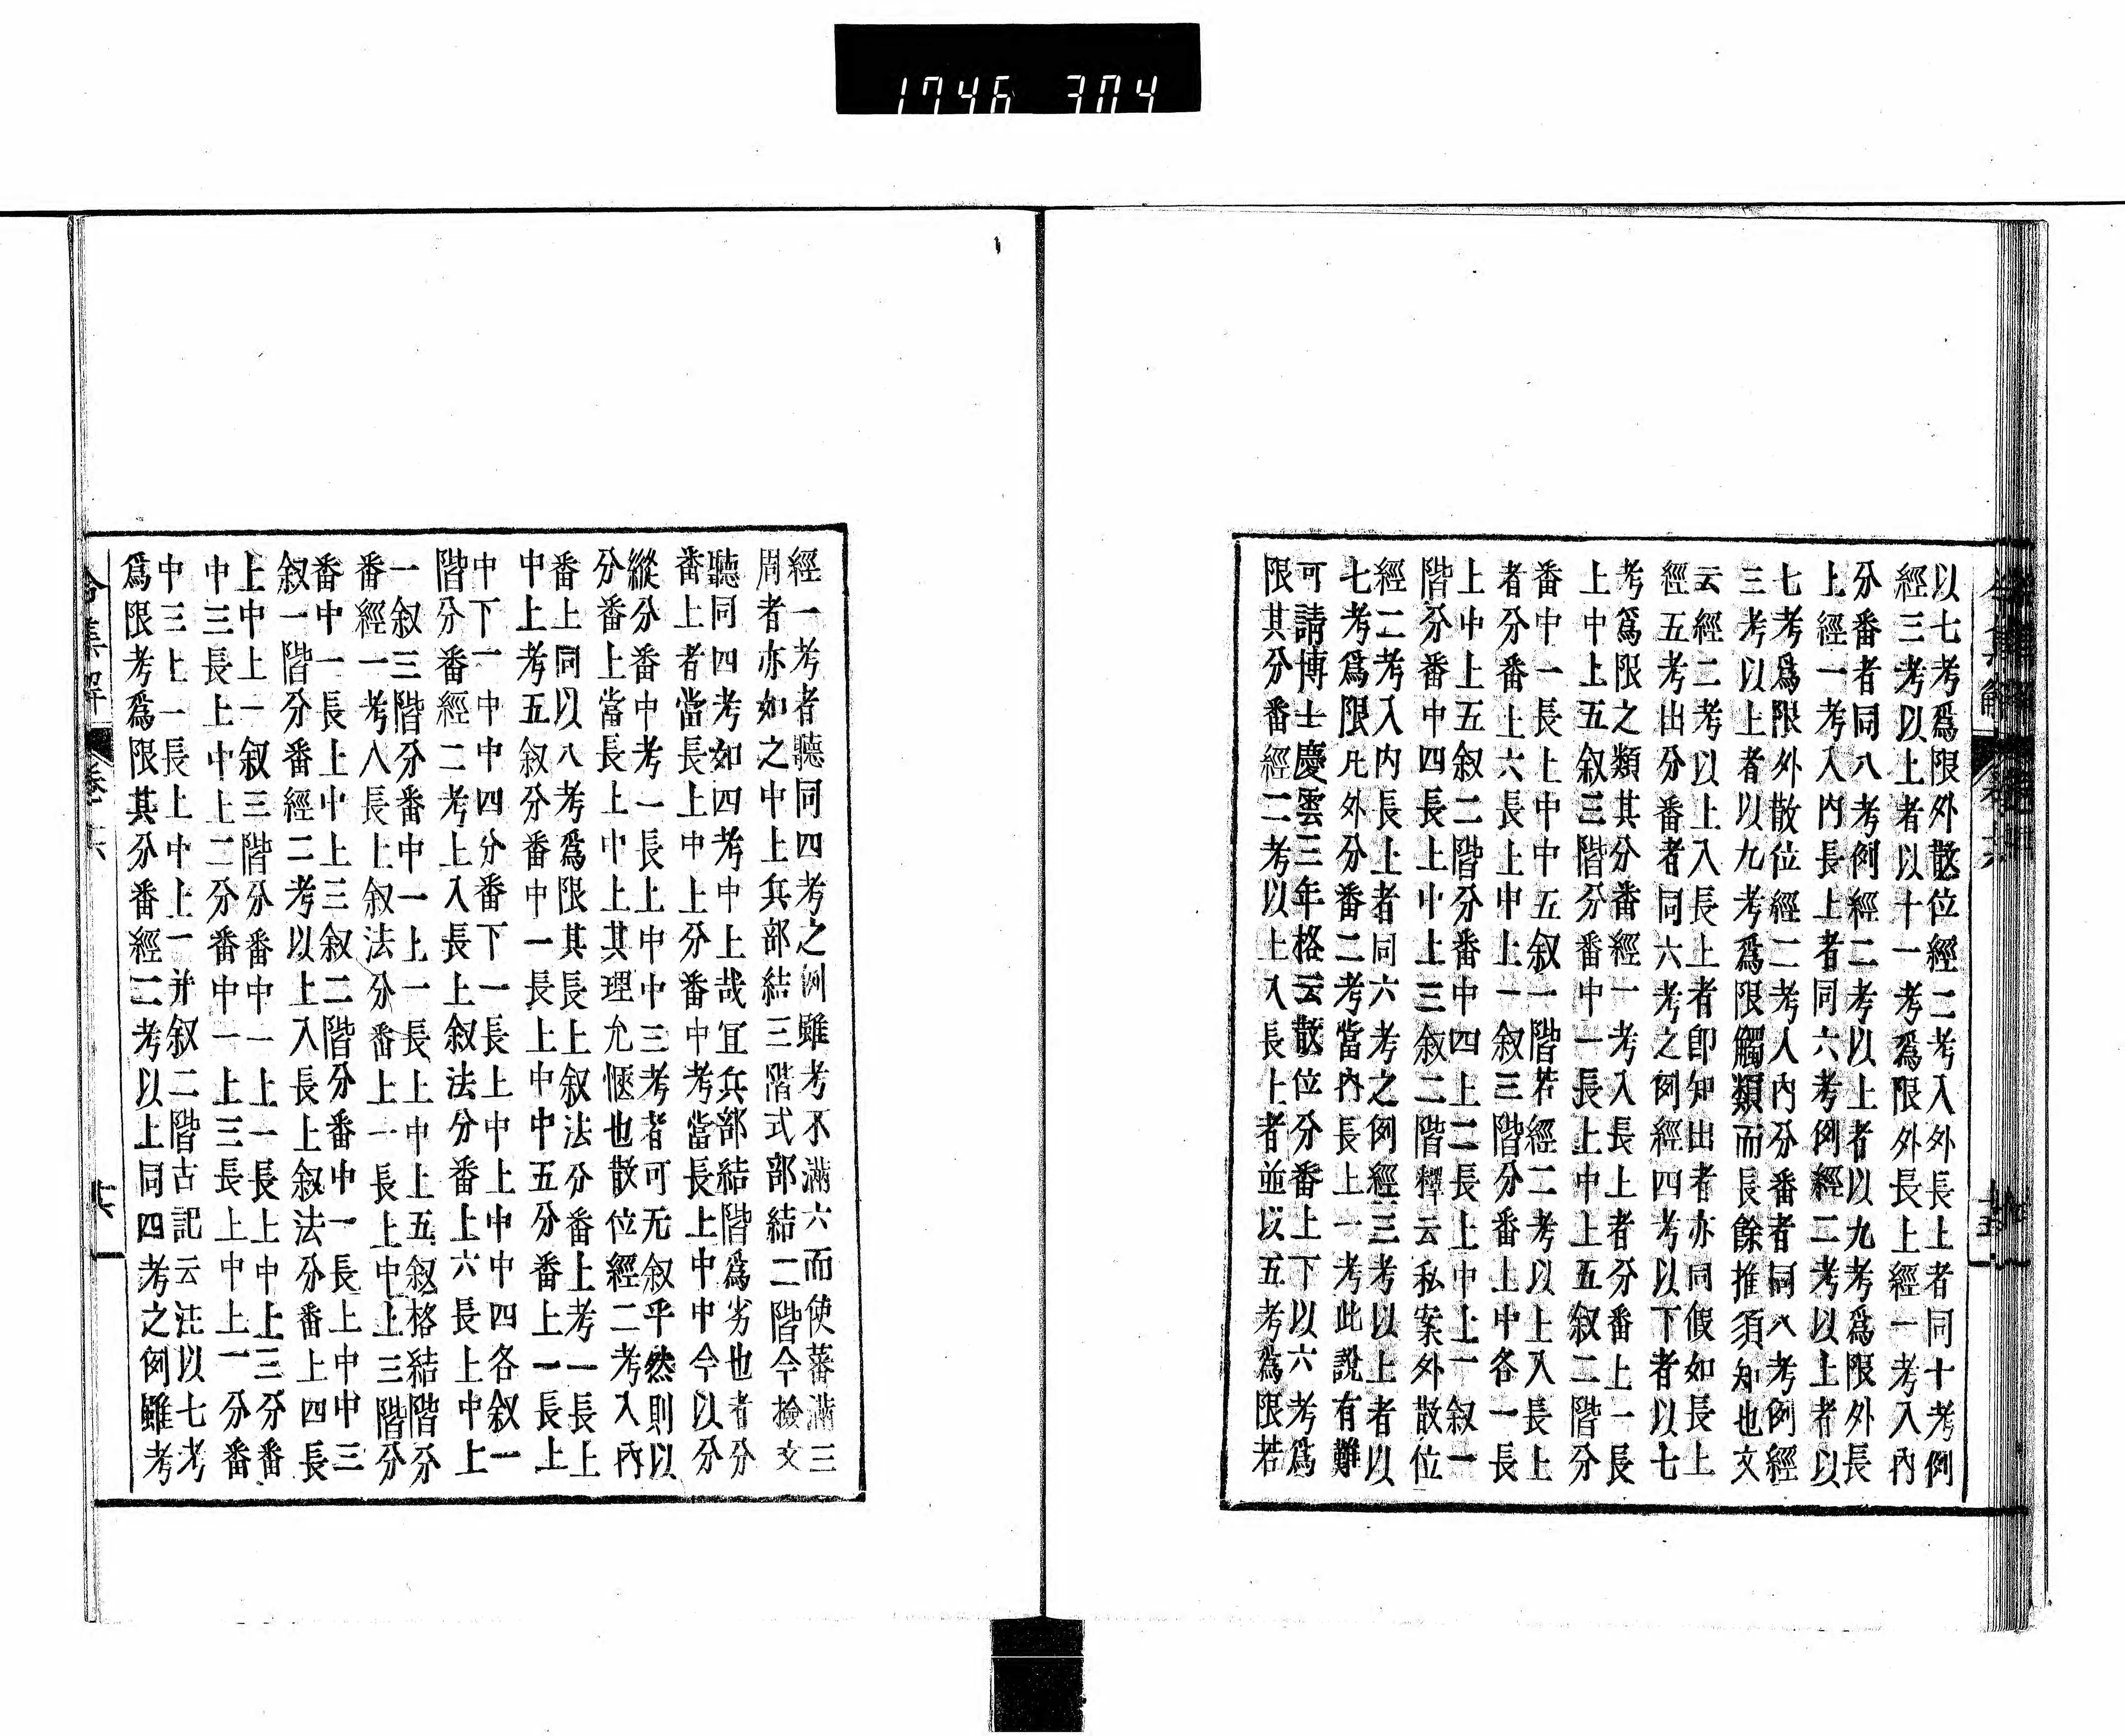 1746 304
以七考爲限外散位經二考入外長上者同十考例
經三考以上者以十一考爲限外長上經一考入內
分番者同八考例經二考以上者以九考爲限外長
上經一考入內長上者同六考例經二考以上者以
七考爲限外散位經二考入內分番者同八考例經
三考以上者以九考爲限觸類而長餘推須知也文
云經二考以上入長上者卽知出者亦同假如長上
經五考出分番者同六考之例經四考以下者以七
考爲限之類其分番經一考入長上者分番上一長
上中上五叙三階分番中一長上中上五叙二階分
番中一長上中中五叙一階若經二考以上入長上
者分番上六長上中上一叙三階分番上中各一長
上中上五叙二階分番中四上二長上中上一叙一
階分番中四長上中上三叙二階釋云私案外散位
經二考入內長上者同六考之例經三考以上者以
七考爲限凡外分番二考當內長上一考此說有難
可請博士慶雲三年格云散位分番上下以六考爲
限其分番經二考以上入長上者並以五考爲限若
令集解 卷六
經一考者聽同四考之例雖考不滿六而使蕃滿三
周者亦如之中上兵部結三階式部結二階今檢文
聽同四考如四考中上哉冝兵部結階爲劣也者分
番上者當長上中上分番中考當長上中中今以分
縱分番中考一長上中中三考者可无叙乎然則以
分番上當長上中上其理允愜也散位經二考入內
番上同以八考爲限其長上叙法分番上考一長上
中上考五叙分番中一長上中中五分番上一長上
中下一中中四分番下一長上中上中中四各叙一
階分番經二考上入長上叙法分番上六長上中上
一叙三階分番中一上一長上中上五叙格結階分
番經一考入長上叙法分番上一長上中上三階分
番中一長上中上三叙二階分番中一長上中中三
叙一階分番經二考以上入長上叙法分番上四長
上中上一叙三階分番中一上一長上中上三分番
中三長上中上二分番中一上三長上中上一分番
中三上一長上中上一并叙二階古記云注以七考
爲限考爲限其分番經二考以上同四考之例雖考
令集解 卷六 十六